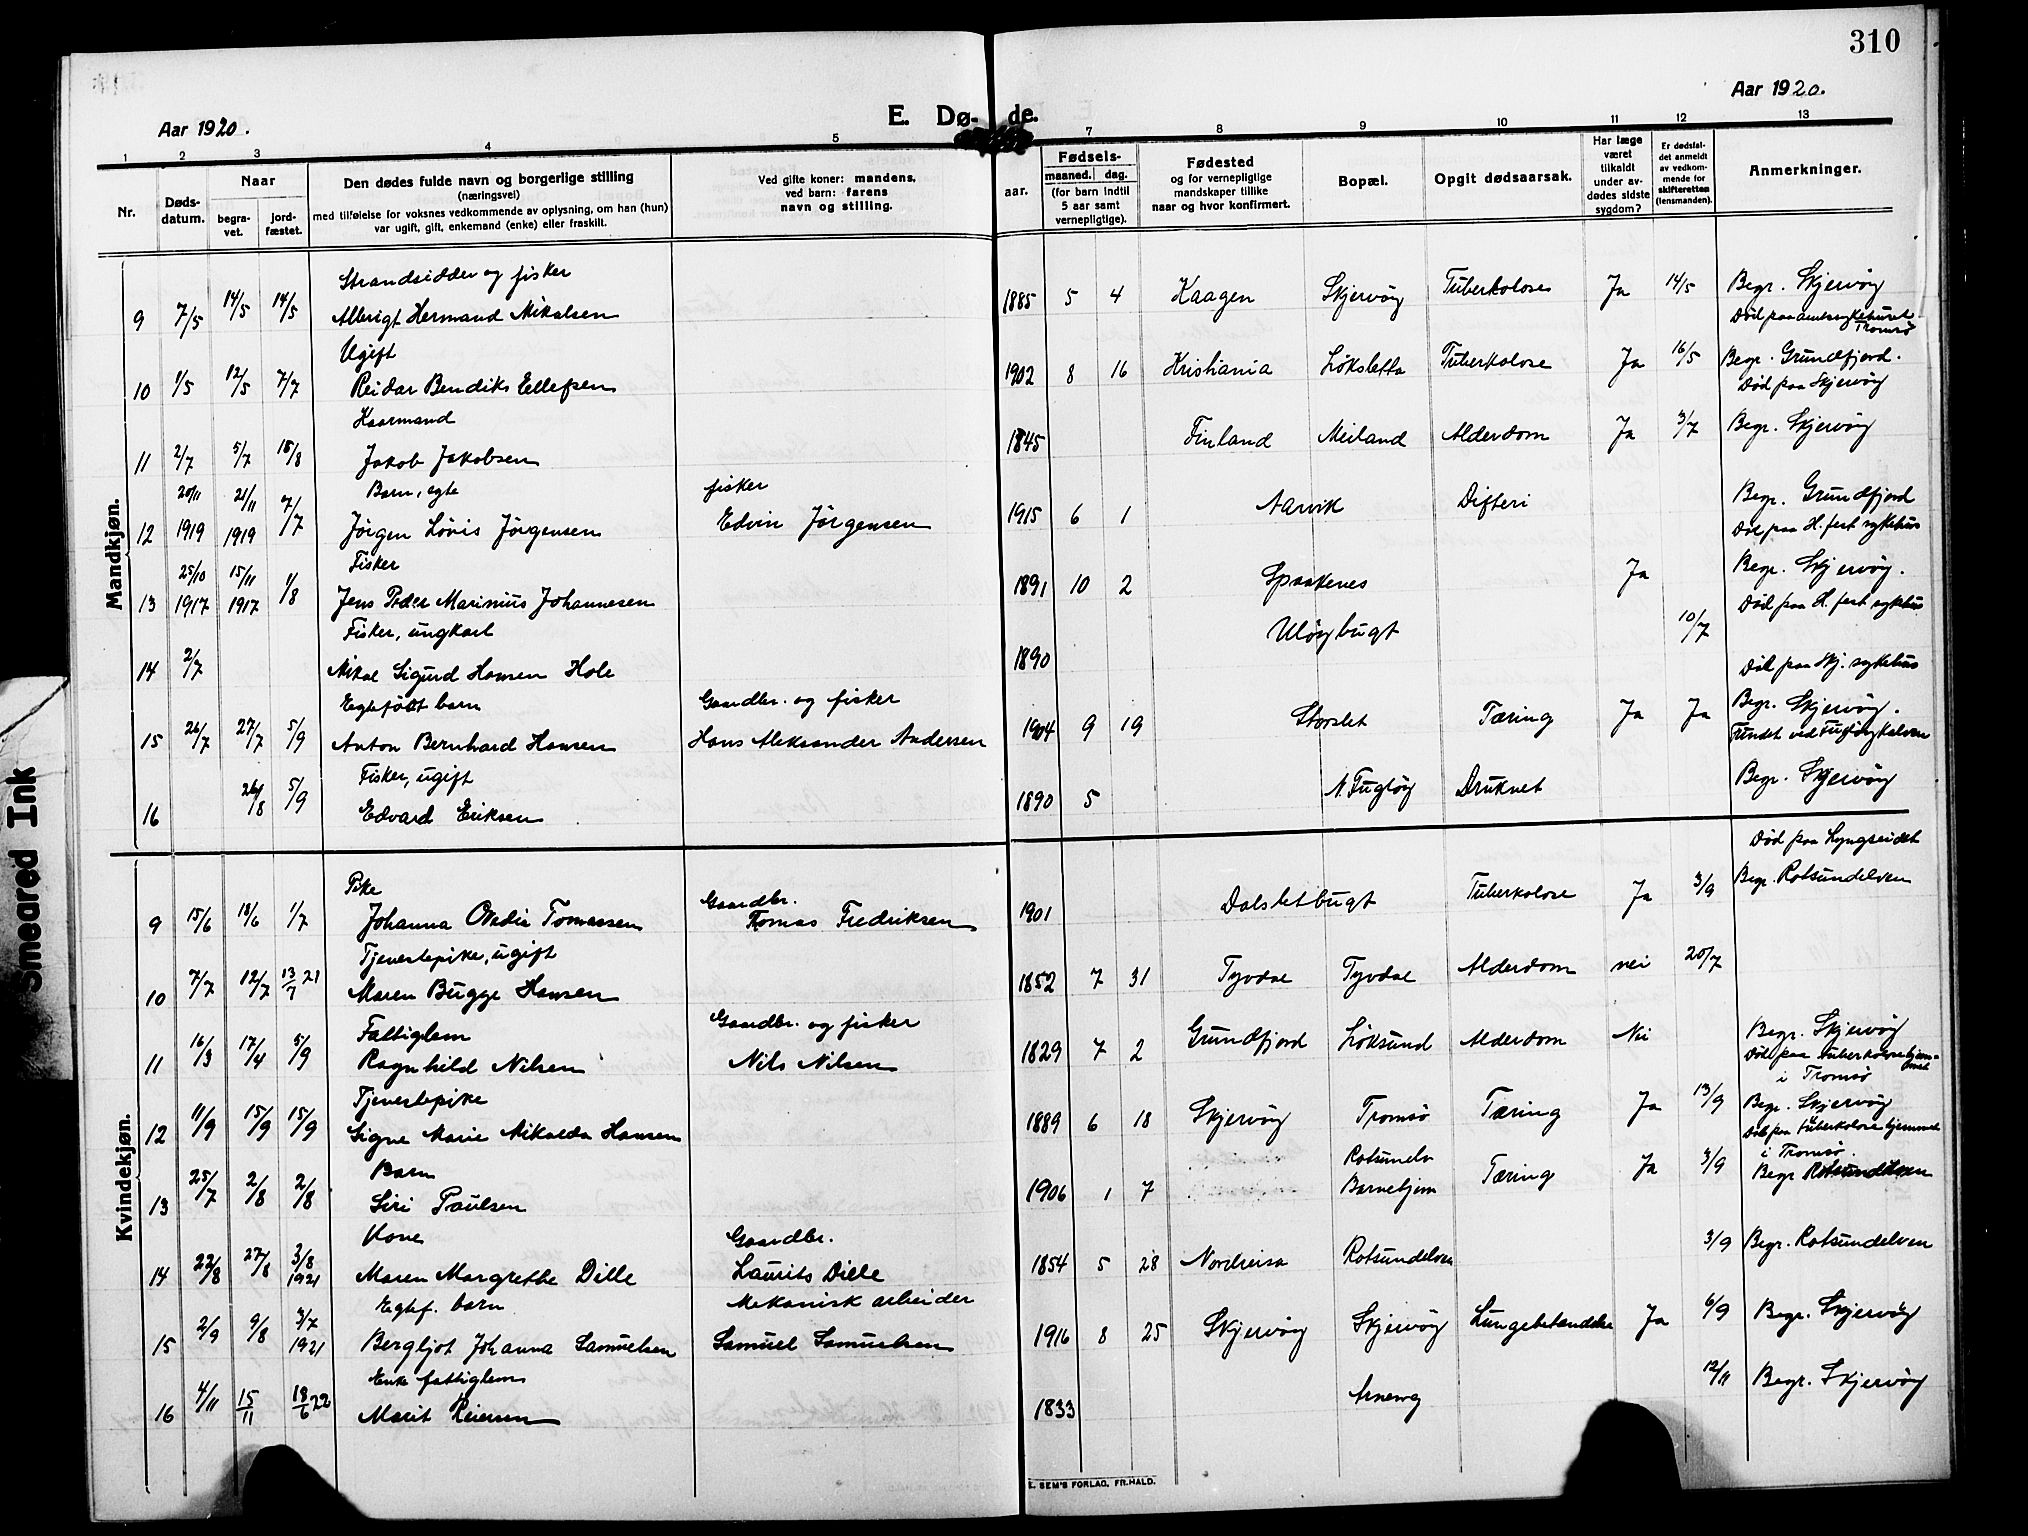 310
Aar 1920.
E. Dø-de.
Aar 1920.
1 2 3 4 5 7 8 9 10 11 12 13
Nr.
Døds-
datum.
Naar
begra-
vet.
jord-
fæstet.
Den dødes fulde navn og borgerlige stilling
(næringsvei)
med tilføielse for voksnes vedkommende av oplysning, om han (hun)
var ugift, gift, enkemand (enke) eller fraskilt.
Ved gifte koner: mandens,
ved barn: farens
navn og stilling.
aar.
Fødsels-
maaned. dag.
(for barn indtil
5 aar samt
vernepligtige).
Fødested
og for vernepligtige
mandskaper tillike
naar og hvor konfirmert.
Bopæl.
Opgit dødsaarsak.
Har læge
været
tilkaldt
under av-
dødes sidste
sygdom?
Er dødsfal-
det anmeldt
av vedkom-
mende for
skifteretten
(lensmanden).
Anmerkninger.
Mandkjøn.
Strandsidder og fisker
9 7/5 14/5 14/5 Albrigt Hermand Mikalsen 1885 5 4 Kaagen Skjervöy Tuberkolose Ja 14/5 Begr. Skjervöy
Död paa amtssykehuset
Tromsö
Ugift
10 1/5 12/5 7/7 Reidar Bendiks Ellefsen 1902 8 16 Kristiania Löksletta Tuberkolose Ja 16/5 Begr. Grundfjord.
Död paa Skjervöy
Kaarmand
11 2/7 5/7 15/8 Jakob Jakobsen 1845 Finland Meiland Alderdom Ja 3/7 Begr. Skjervöy
Barn, egte fisker
12 20/11 1919 21/11 1919 7/7 Jörgen Lövis Jörgensen Edvin Jörgensen 1915 6 1 Aarvik Difteri Begr. Grundfjord
Död paa H. fest sykehus
Fisker
13 25/10 1917 15/11 1917 1/8 Jens Peder Marinius Johannesen 1891 10 2 Spaakenes Ja Begr. Skjervöy.
Död paa H. fest sykehus
Fisker, ungkarl
14 2/7 Mikal Sigurd Hansen Hole 1890 Ulöybugt 10/7
Död paa Skj. sykehus
Egtefödt barn Gaardbr. og fisker
15 26/7 27/7 5/9 Anton Bernhard Hansen Hans Aleksander Andersen 1904 9 19 Storslet Tæring Ja Ja Begr. Skjervöy.
Fundet ved Fuglöykalven
Fisker, ugift
16 26/8 5/9 Edvard Eriksen 1890 5 N. Fuglöy Druknet Begr. Skjervöy
Kvindekjøn.
Död paa Lyngseidet
Pike Gaardbr.
9 15/6 18/6 1/7 Johanna Tomassen Tomas Fredriksen 1901 Dalsletbugt Tuberkolose Ja 3/9 Begr. Rotsundelven
Tjenestepike, ugift
10 7/7 12/7 13/7 21 Maren Bugge Hansen 1852 7 31 Tyvdal Tyvdal Alderdom nei 20/7
Fattiglem Gaardbr. og fisker
11 16/3 17/4 5/9 Ragnhild Nilsen Nils Nilsen 1829 7 2 Grundfjord Löksund Alderdom Nei Begr. Skjervöy
Död paa tuberkolosehjem-
met
i Tromsö
Tjenestepike
12 11/9 15/9 15/9 Signe Marie Mikalda Hansen 1889 6 18 Skjervöy Tromsö Tæring Ja 13/9 Begr. Skjervöy
Död paa tuberkolosehjemmet
i Tromsö.
Barn Rotsundelv
13 25/7 2/8 2/8 Siri Paulsen 1906 1 7 Barnehjem Tæring Ja 3/9 Begr Rotsundelven
Kone Gaardbr.
14 22/8 27/8 3/8 1921 Maren Margrethe Dille Laurits Dille 1854 5 28 Nordreisa Rotsundelven 3/9 Begr. Rotsundelven
Egtef. barn Mekanisk arbeider
15 2/9 9/8 3/7 1921 Bergljot Johanna Samuelsen Samuel Samuelsen 1916 8 25 Skjervöy Skjervöy Lungebetændelse Ja 6/9 Begr. Skjervöy
Enke fattiglem
16 4/11 15/11 18/6 22 Marit Reiersen 1833 Arnöy 12/11 Begr. Skjervöy
E. SEM'S FORLAG, FR.HALD.
Smeared Ink